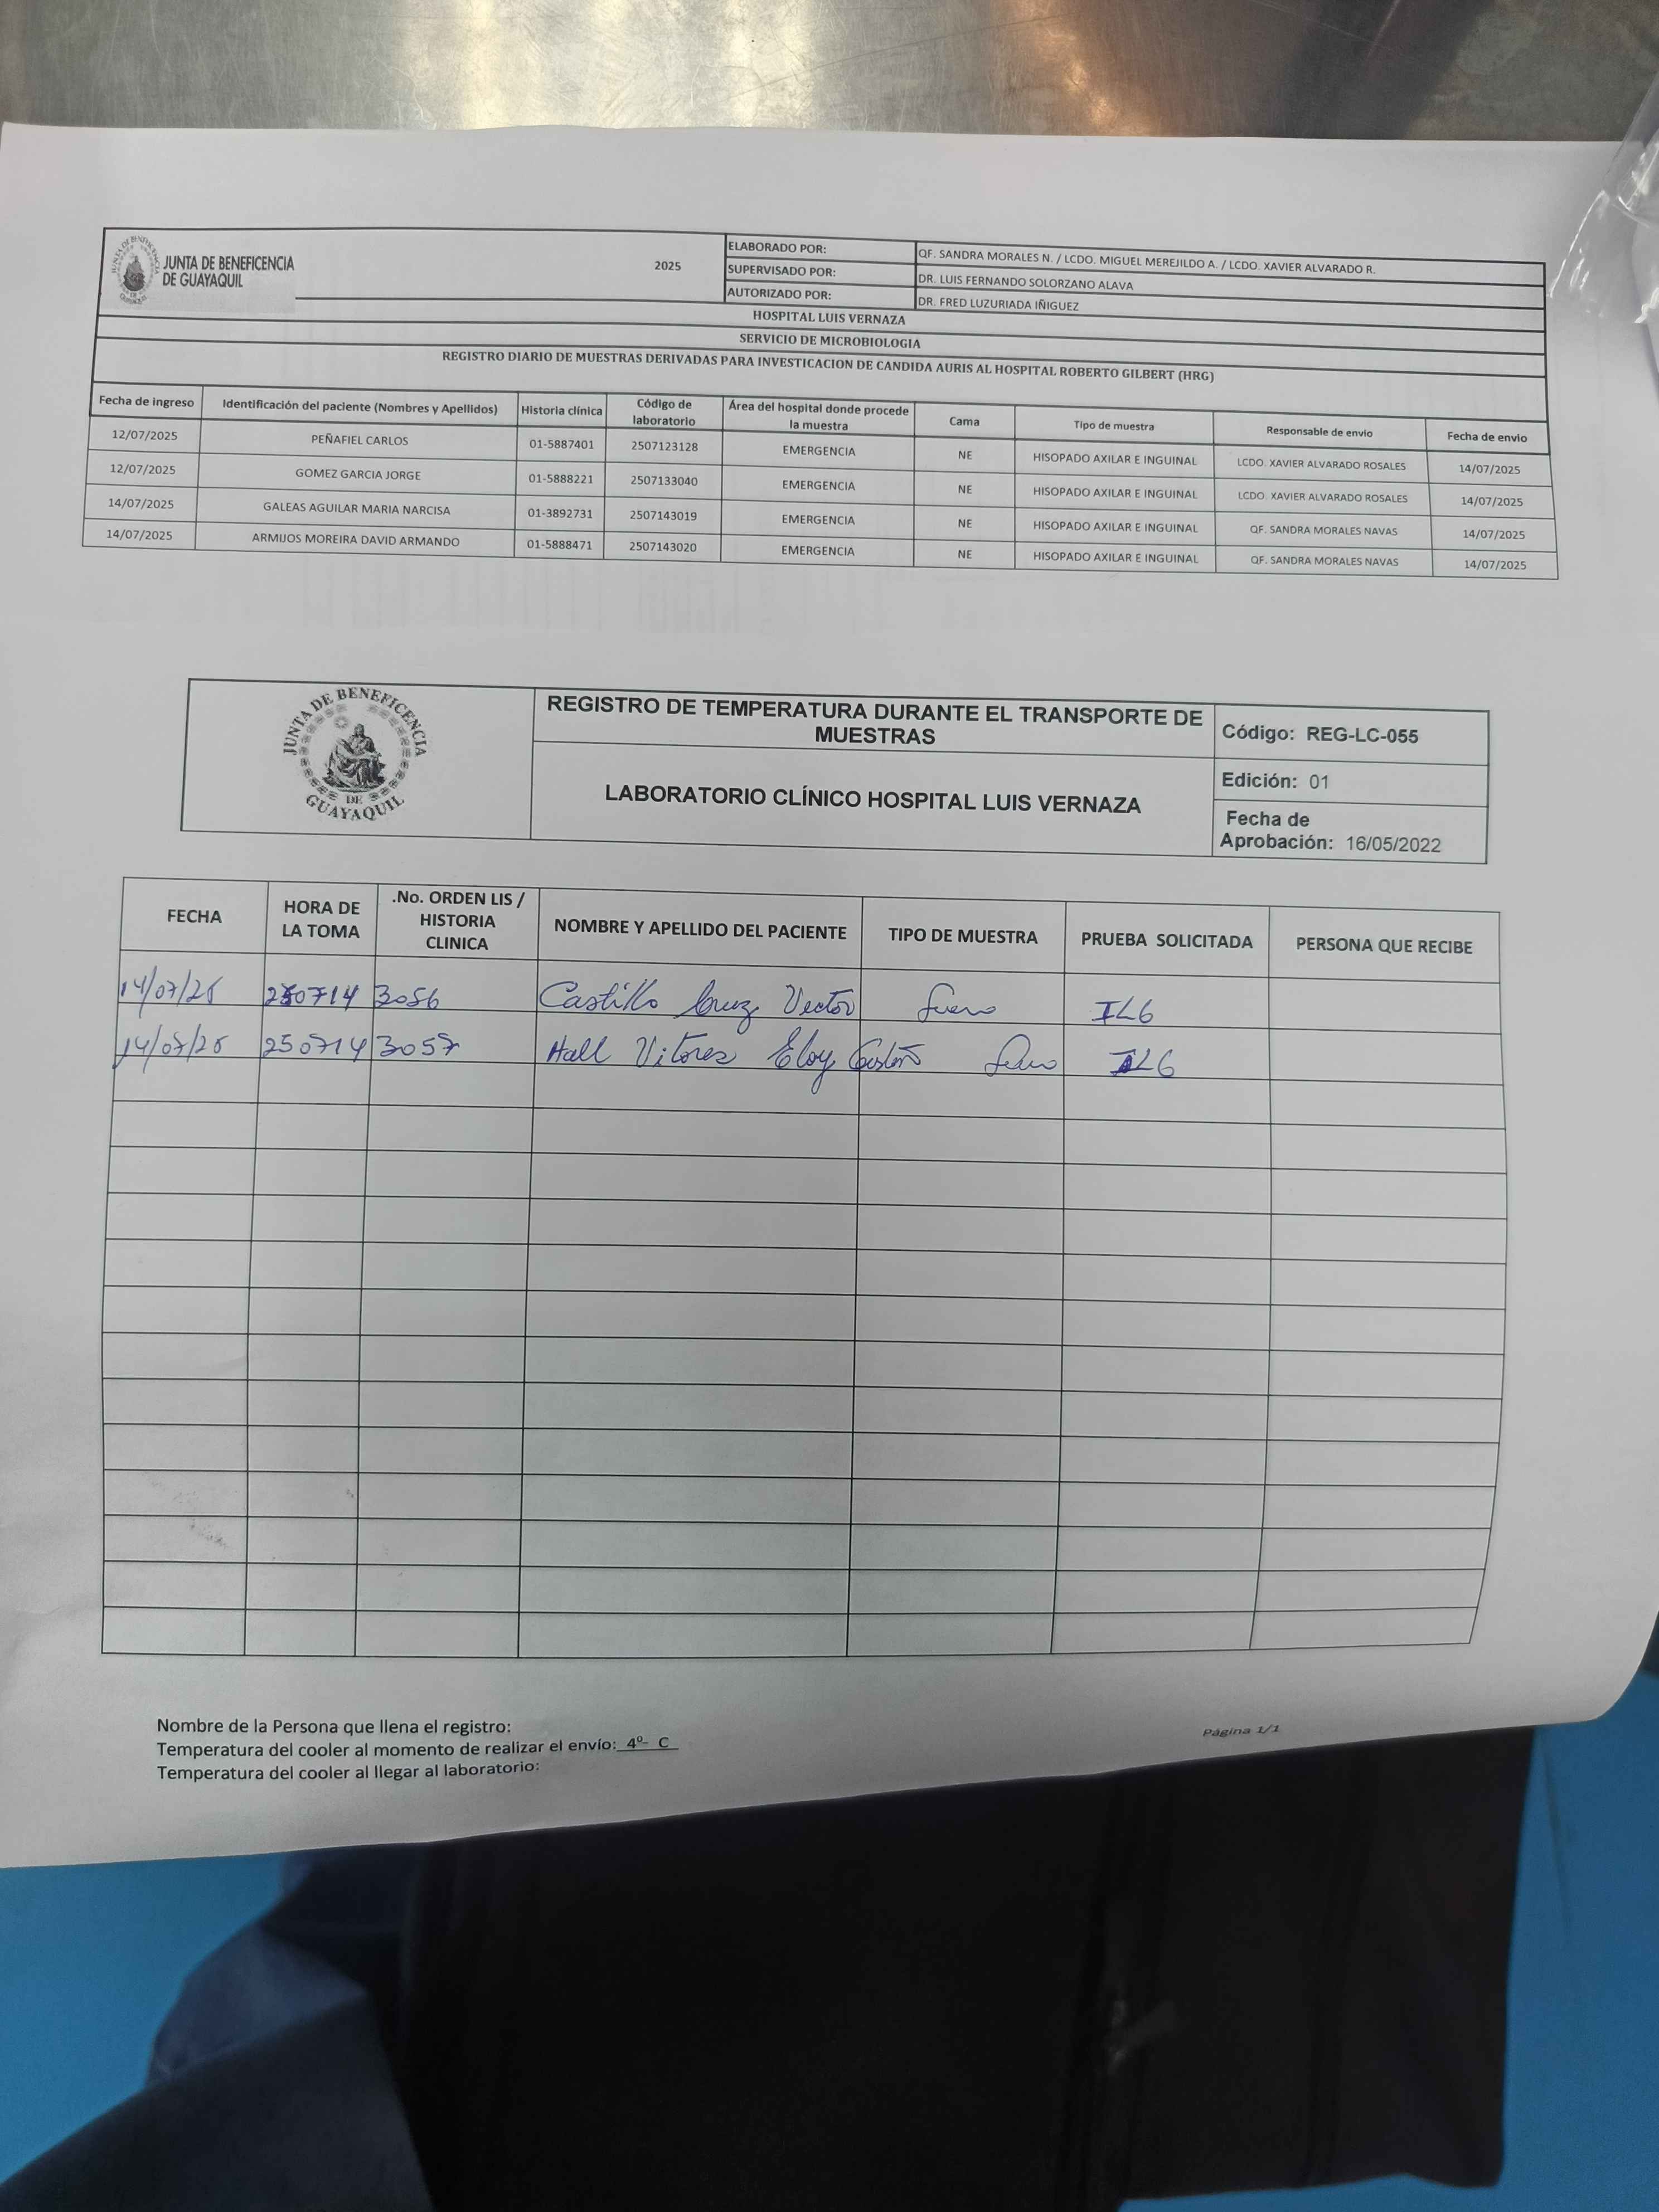 JUNTA DE BENEFICENCIA
DE GUAYAQUIL
2025
ELABORADO POR: QF. SANDRA MORALES N. / LCDO. MIGUEL MEREJILDO A. / LCDO. XAVIER ALVARADO R.
SUPERVISADO POR: DR. LUIS FERNANDO SOLORZANO ALAVA
AUTORIZADO POR: DR. FRED LUZURIADA IÑIGUEZ
HOSPITAL LUIS VERNAZA
SERVICIO DE MICROBIOLOGIA
REGISTRO DIARIO DE MUESTRAS DERIVADAS PARA INVESTICACION DE CANDIDA AURIS AL HOSPITAL ROBERTO GILBERT (HRG)
Fecha de ingreso Identificación del paciente (Nombres y Apellidos) Historia clínica Código de laboratorio Área del hospital donde procede la muestra Cama Tipo de muestra Responsable de envio Fecha de envio
12/07/2025 PEÑAFIEL CARLOS 01-5887401 2507123128 EMERGENCIA NE HISOPADO AXILAR E INGUINAL LCDO. XAVIER ALVARADO ROSALES 14/07/2025
12/07/2025 GOMEZ GARCIA JORGE 01-5888221 2507133040 EMERGENCIA NE HISOPADO AXILAR E INGUINAL LCDO. XAVIER ALVARADO ROSALES 14/07/2025
14/07/2025 GALEAS AGUILAR MARIA NARCISA 01-3892731 2507143019 EMERGENCIA NE HISOPADO AXILAR E INGUINAL QF. SANDRA MORALES NAVAS 14/07/2025
14/07/2025 ARMIJOS MOREIRA DAVID ARMANDO 01-5888471 2507143020 EMERGENCIA NE HISOPADO AXILAR E INGUINAL QF. SANDRA MORALES NAVAS 14/07/2025
JUNTA DE BENEFICENCIA DE GUAYAQUIL
REGISTRO DE TEMPERATURA DURANTE EL TRANSPORTE DE
MUESTRAS
LABORATORIO CLÍNICO HOSPITAL LUIS VERNAZA
Código: REG-LC-055
Edición: 01
Fecha de
Aprobación: 16/05/2022
FECHA HORA DE LA TOMA .No. ORDEN LIS / HISTORIA CLINICA NOMBRE Y APELLIDO DEL PACIENTE TIPO DE MUESTRA PRUEBA SOLICITADA PERSONA QUE RECIBE
14/07/25 250714 3056 Castillo Cruz Vector Suero IL6
14/07/25 250714 3057 Hall Vitores Eloy Suero IL6
Nombre de la Persona que llena el registro:
Temperatura del cooler al momento de realizar el envío: 4º C
Temperatura del cooler al llegar al laboratorio:
Página 1/1